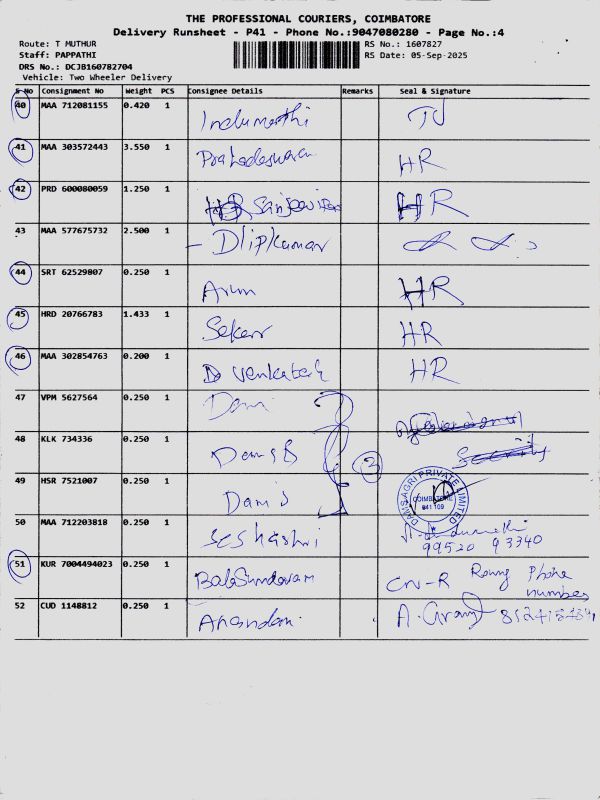 THE PROFESSIONAL COURIERS, COIMBATORE
Delivery Runsheet - P41 - Phone No.:9047080280 - Page No.:4
Route: T MUTHUR RS No.: 1607827
Staff: PAPPATHI RS Date: 05-Sep-2025
DRS No.: DCJB160782704
Vehicle: Two Wheeler Delivery
S No Consignment No Weight PCS Consignee Details Remarks Seal & Signature
40 MAA 712081155 0.420 1 Indumathi
41 MAA 303572443 3.550 1 HR
42 PRD 600080059 1.250 1 HR
43 MAA 577675732 2.500 1 - Dlipkumar
44 SRT 62529807 0.250 1 Arun HR
45 HRD 20766783 1.433 1 Seker HR
46 MAA 302854763 0.200 1 D Venkatesh HR
47 VPM 5627564 0.250 1 Dams
48 KLK 734336 0.250 1 Dams 3
49 HSR 7521007 0.250 1 Dams
DAMS AGRI PRIVATE LIMITED
COIMBATORE
641 109
50 MAA 712203818 0.250 1 Seshasri
99520 93340
51 KUR 7004494023 0.250 1 BalaSundaram CN-R Rong Phone number
52 CUD 1148812 0.250 1 Anandam